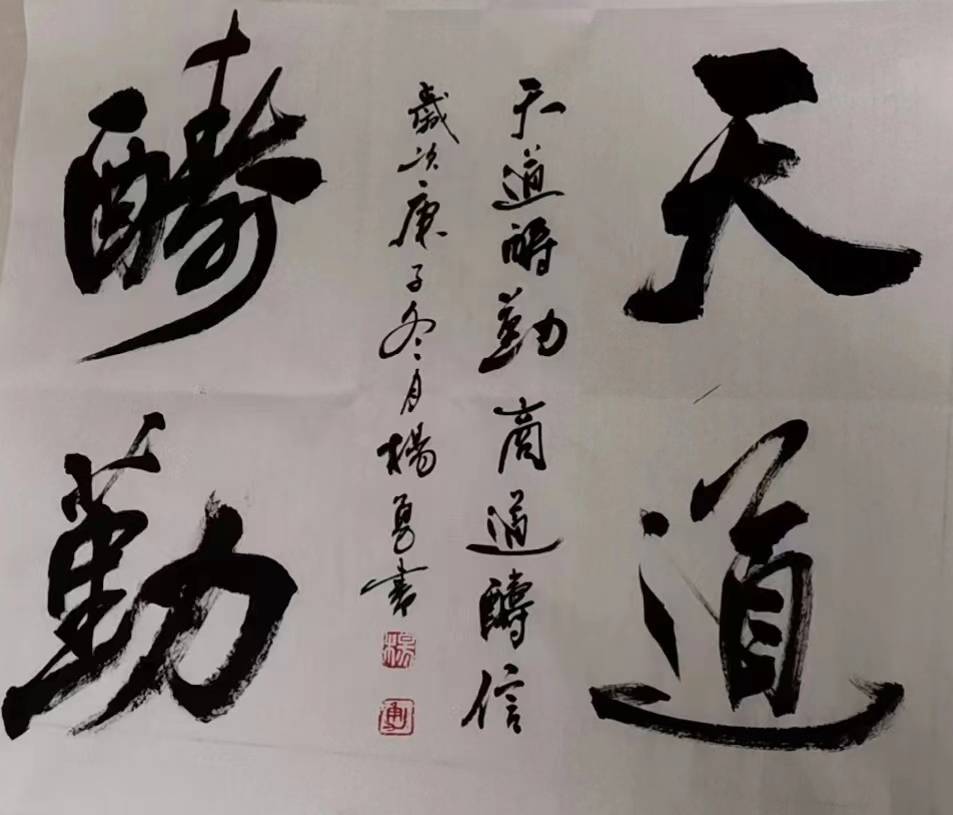 天道
天道酬勤商道酬信
歲次庚子冬月楊勇書
楊
勇
酬勤